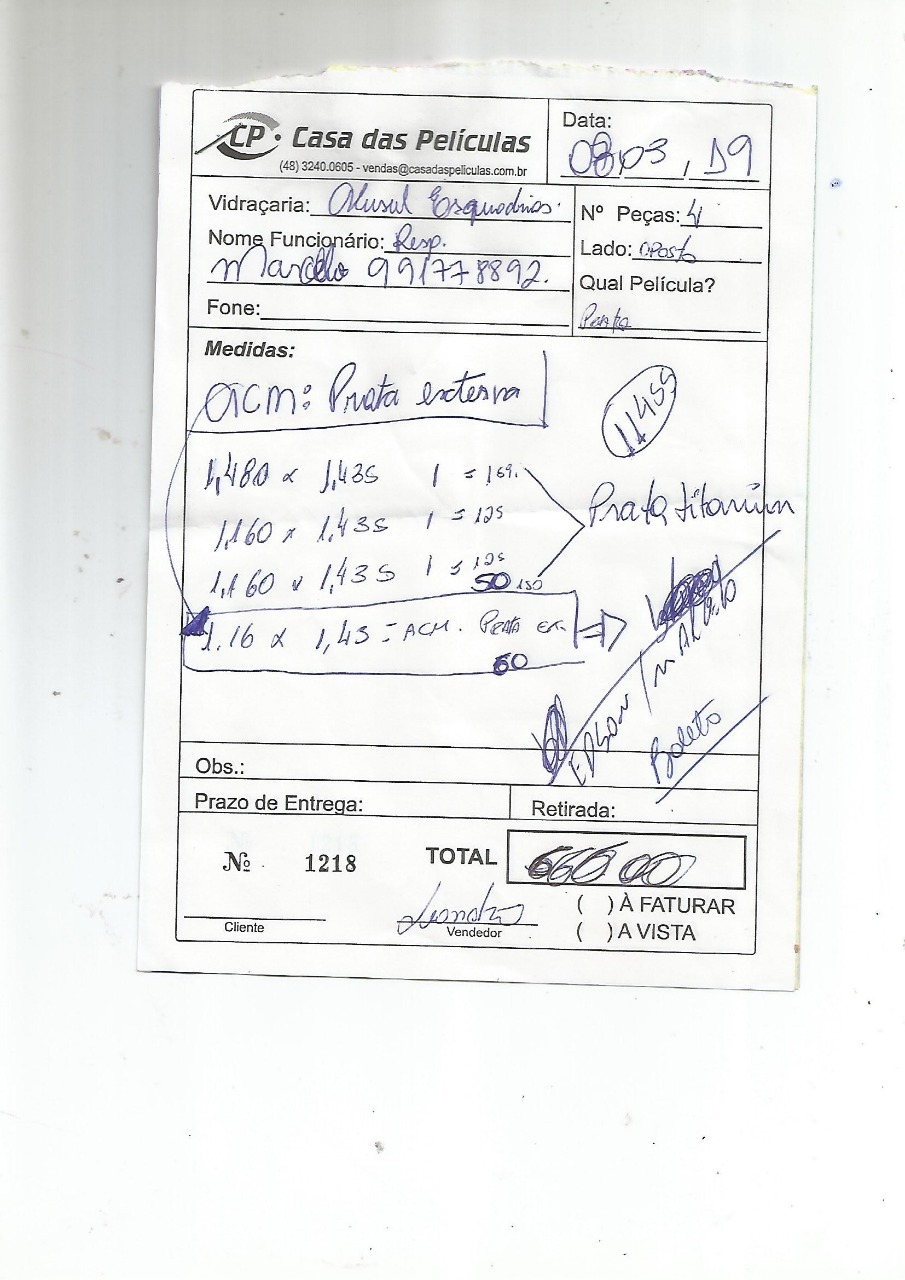 CP Casa das Películas
(48) 3240.0605 - vendas@casadaspeliculas.com.br
Data:
08,03,19
Vidraçaria: Alusul Esquadrias.
Nº Peças: 4
Nome Funcionário: Resp.
Marcello 991778892.
Lado: oposto
Qual Película?
Prata
Fone:
Medidas:
ACM: Prata externa
11455
1,480 x 1,435 1 = 159.
1,160 x 1,435 1 = 125
Prata titanium
1,160 x 1,435 1 = 125
50 150
1.16 x 1,43 = ACM. Prata ex.
60
Edson /
Boleto
Obs.:
Prazo de Entrega:
Retirada:
Nº 1218
TOTAL
Cliente
Vendedor
( ) À FATURAR
( ) A VISTA